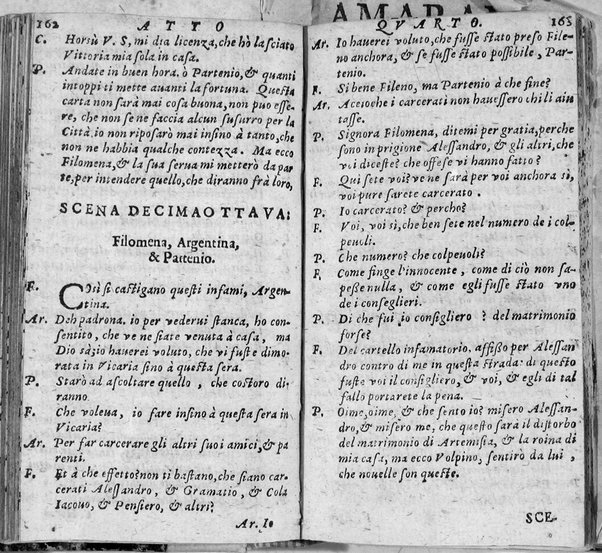 162 ATTO
C. Horsù V. S, mi dia licenza, che hò lasciato
Vittoria mia sola in casa.
P. Andate in buon hora. ò Partenio, & quanti
intoppi ti mette auanti la fortuna. Questa
carta non sarà mai cosa buona, non puo esse-
re, che non se ne faccia alcun susurro per la
Città. io non riposarò mai insino à tanto, che
non ne habbia qualche contezza. Ma ecco
Filomena, & la sua serua mi metterò da par
te, per intendere quello, che diranno frà loro,
SCENA DECIMAOTTAVA:
Filomena, Argentina,
& Partenio.
F. Cosi si castigano questi infami, Argen-
tina.
Ar. Deh padrona. io per vederui stanca, ho con-
sentito, che ve ne siate venuta à casa, ma
Dio sa, io hauerei voluto, che vi fuste dimo-
rata in Vicaria sino à questa sera.
P. Starò ad ascoltare quello, che costoro di-
ranno.
F. Che voleua, io fare insino à questa sera in
Vicaria?
Ar. Per far carcerare gli altri suoi amici, & pa
renti.
F. Et à che effetto? non ti bastano, che siano car-
cerati Alessandro, & Gramatio, & Cola
Iacouo, & Pensiero, & altri?
Ar. Io
AMARAN
QVARTO. 163
Ar. Io hauerei voluto, che fusse stato preso File-
no anchora, & se fusse stato possibile, Par-
tenio.
F. Si bene Fileno, ma Partenio à che fine?
Ar. Accioche i carcerati non hauessero chi li aiu
tasse.
P. Signora Filomena, ditemi per gratia, perche
sono in prigione Alessandro, & gli altri, che
vui diceste? che offese vi hanno fatto?
F. Qui sete voi? ve ne sarà per voi anchora sì,
voi pure sarete carcerato.
P. Io carcerato? & perche?
F. Voi, voi sì, che ben sete nel numero de i col-
peuoli.
P. Che numero? che colpeuoli?
F. Come finge l'innocente, come di ciò non sa-
pesse nulla, & come egli fusse stato vno
de i conseglieri.
P. Di che fui io consigliero? del matrimonio
forse?
F. Del cartello infamatorio, affisso per Alessan
dro contro di me in questa strada: di questo
fuste voi il consigliero, & voi, & egli di tal
fallo portarete la pena.
P. Oime, oime, & che sento io? misero Alessan-
dro, & misero me, che questo sarà il distorbo
del matrimonio di Artemisia, & la roina di
mia casa, ma ecco Volpino, sentirò da lui,
che nouelle son queste.
SCE-